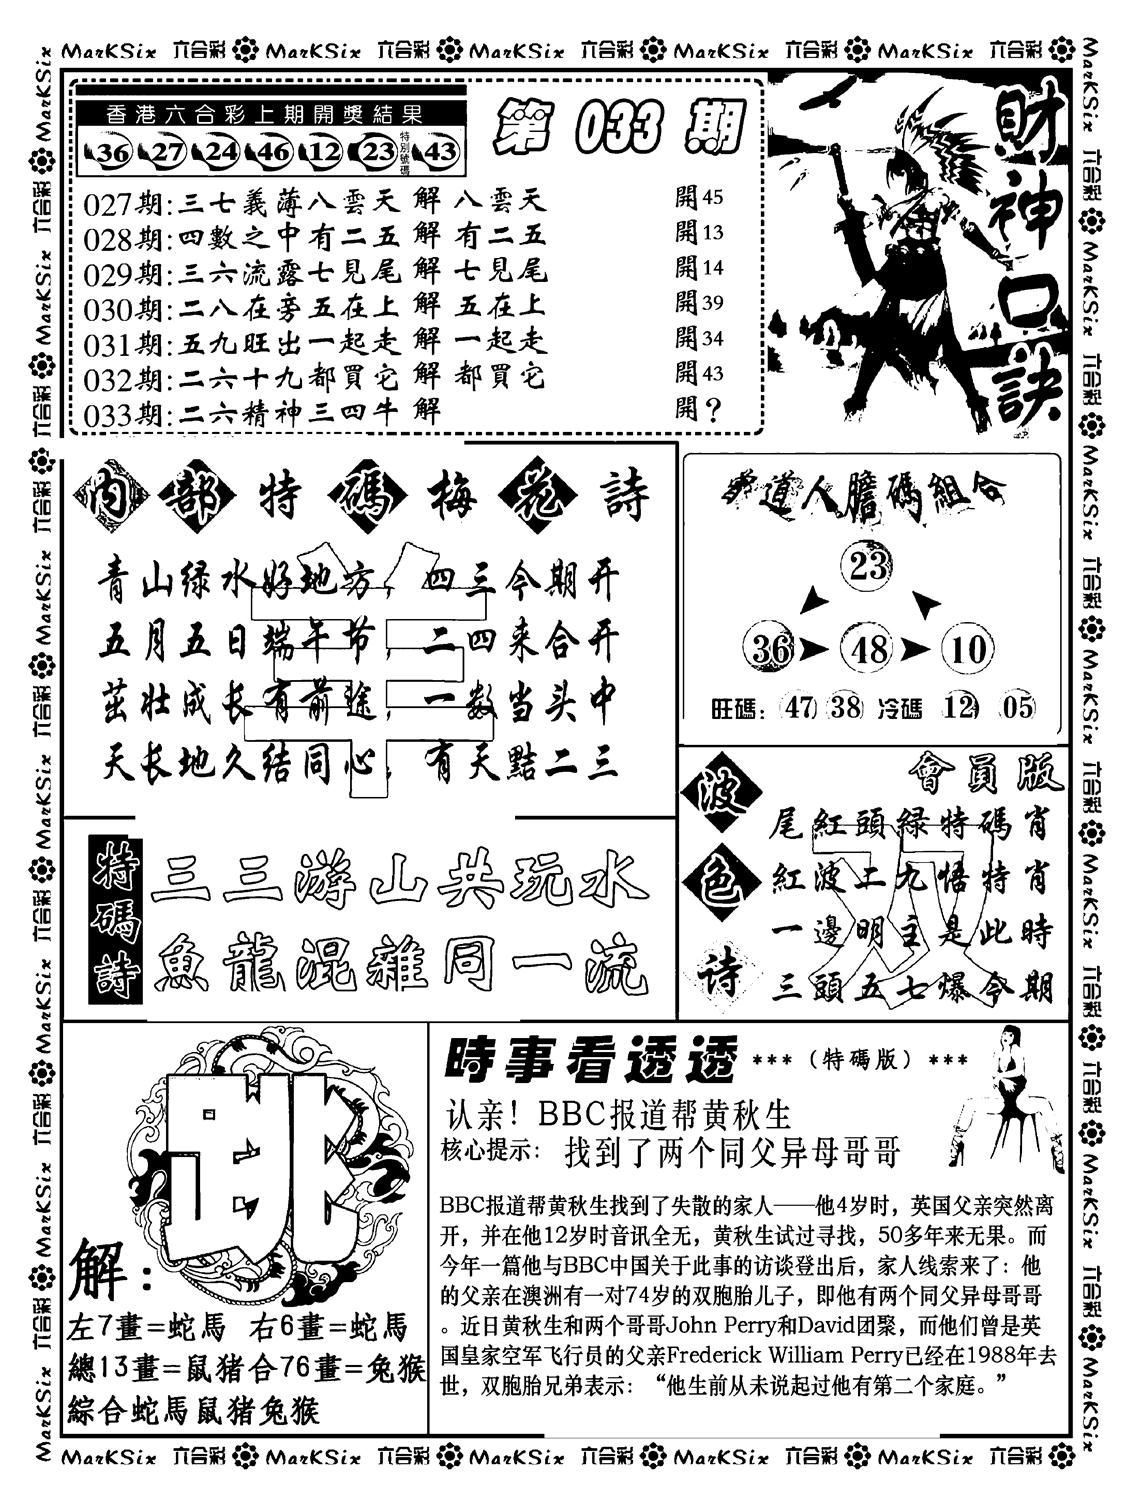 MarKSix 六合彩 MarKSix 六合彩 MarKSix 六合彩 MarKSix 六合彩 MarKSix 六合彩
香港六合彩上期開獎結果
36 27 24 46 12 23 特別號碼 43
第 033 期
027期:三七義薄八雲天 解 八雲天 開45
028期:四數之中有二五 解 有二五 開13
029期:三六流露七見尾 解 七見尾 開14
030期:二八在旁五在上 解 五在上 開39
031期:五九旺出一起走 解 一起走 開34
032期:二六十九都買它 解 都買它 開43
033期:二六精神三四牛 解 開?
財神口訣
內部特碼梅花詩
羊
青山绿水好地方，四三今期开
五月五日端午节，二四来合开
茁壮成长有前途，一数当头中
天长地久结同心，有天點二三
道人膽碼組合
23
36 48 10
旺碼：47 38 冷碼 12 05
波色诗
會員版
双
尾紅頭緑特碼肖
紅波土九悟特肖
一邊明主是此時
三頭五七爆今期
特碼詩
三三游山共玩水
魚龍混雜同一流
跳
解：
左7畫=蛇馬 右6畫=蛇馬
總13畫=鼠猪合76畫=兔猴
綜合蛇馬鼠猪兔猴
時事看透透 ***（特碼版）***
认亲！BBC报道帮黄秋生
核心提示：找到了两个同父异母哥哥
BBC报道帮黄秋生找到了失散的家人——他4岁时，英国父亲突然离
开，并在他12岁时音讯全无，黄秋生试过寻找，50多年来无果。而
今年一篇他与BBC中国关于此事的访谈登出后，家人线索来了：他
的父亲在澳洲有一对74岁的双胞胎儿子，即他有两个同父异母哥哥
。近日黄秋生和两个哥哥John Perry和David团聚，而他们曾是英
国皇家空军飞行员的父亲Frederick William Perry已经在1988年去
世，双胞胎兄弟表示：“他生前从未说起过他有第二个家庭。”
MarKSix 六合彩 MarKSix 六合彩 MarKSix 六合彩 MarKSix 六合彩 MarKSix 六合彩